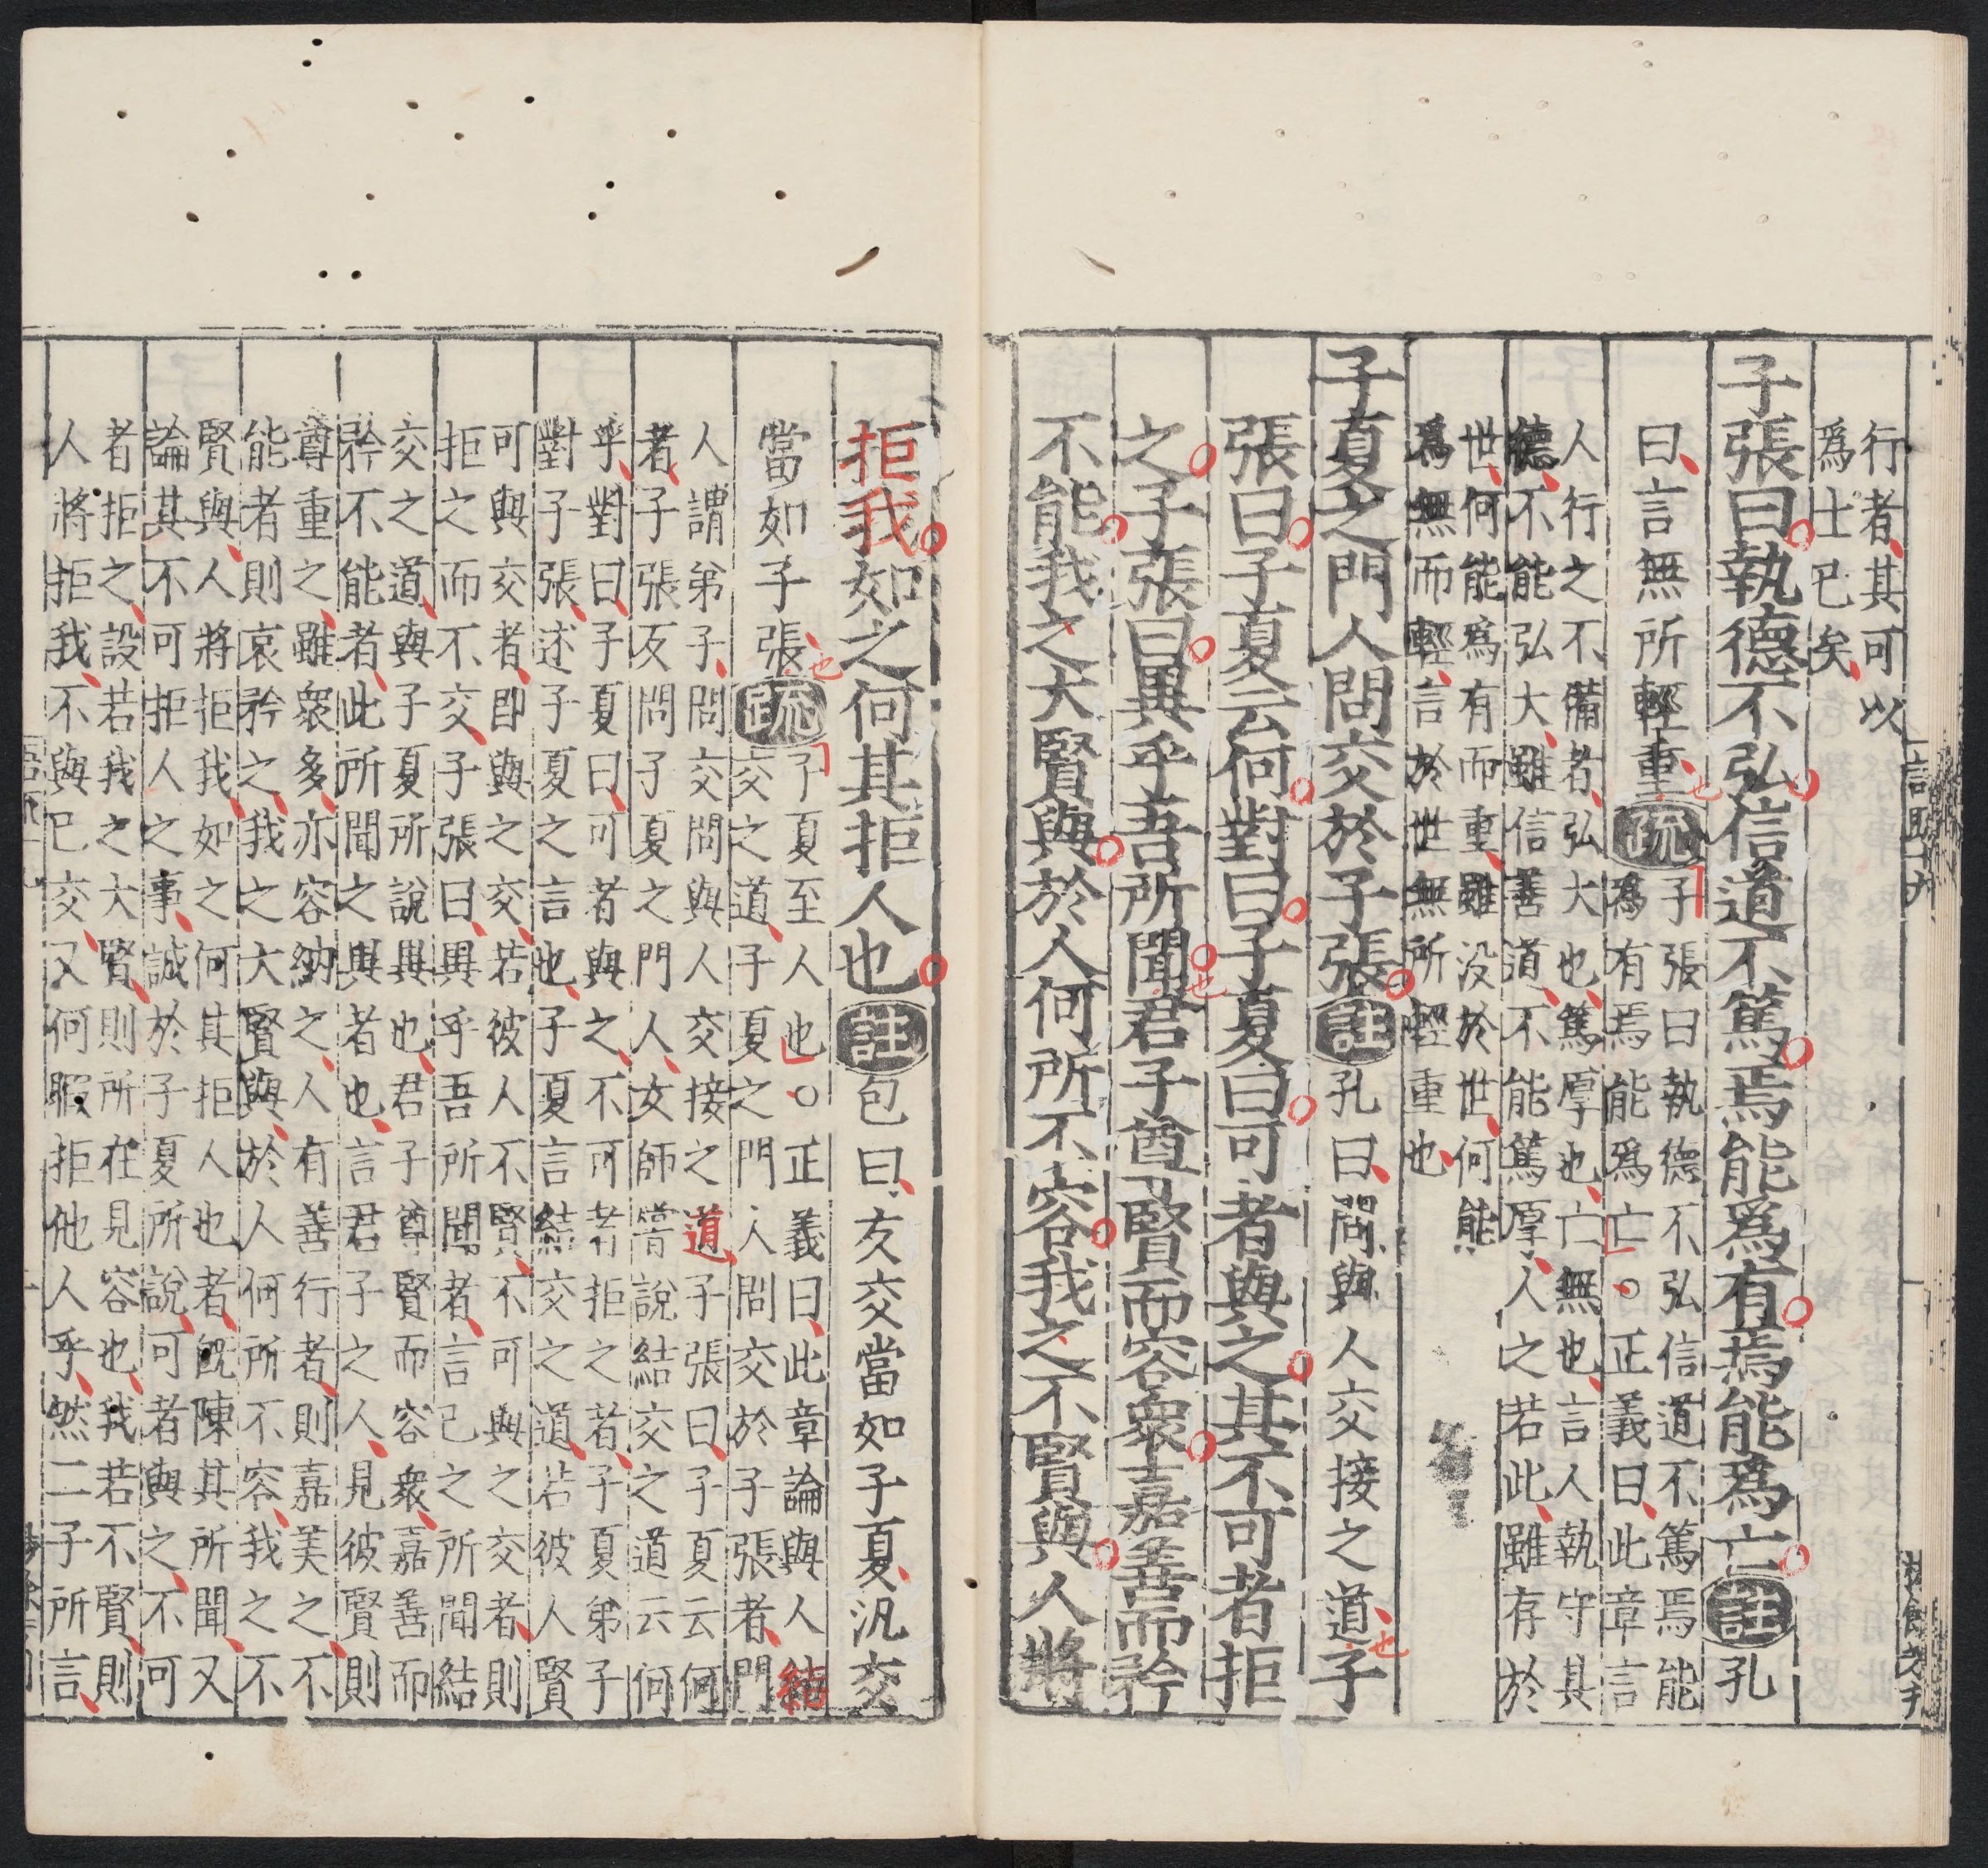 行者其可以
爲士已矣
子張曰執德不弘信道不篤焉能爲有焉能爲亡註孔
曰言無所輕重也疏
子張曰執德不弘信道不篤焉能
爲有焉能爲亡○正義曰此章言
人行之不備者弘大也篤厚也亡無也言人執守其
德不能弘大雖信善道不能篤厚人之若此雖存於
世何能爲有而重雖没於世何能
爲無而輕言於世無所輕重也
子夏之門人問交於子張註孔曰問與人交接之道也子
張曰子夏云何對曰子夏曰可者與之其不可者拒
之子張曰異乎吾所聞也君子尊賢而容衆嘉善而矜
不能我之大賢與於人何所不容我之不賢與人將
拒我如之何其拒人也註包曰友交當如子夏汎交
當如子張也疏
子夏至人也○正義曰此章論與人結
交之道子夏之門人問交於子張者門
人謂弟子問交問與人交接之道子張曰子夏云何
者子張反問子夏之門人女師嘗說結交之道云何
乎對曰子夏曰可者與之不可者拒之者子夏弟子
對子張述子夏之言也子夏言結交之道若彼人賢
可與交者即與之交若彼人不賢不可與之交者則
拒之而不交子張曰異乎吾所聞者言己之所聞結
交之道與子夏所說異也君子尊賢而容衆嘉善而
矜不能者此所聞之異者也言君子之人見彼賢則
尊重之雖衆多亦容納之人有善行者則嘉美之不
能者則哀矜之我之大賢與於人何所不容我之不
賢與人將拒我如之何其拒人也者既陳其所聞又
論其不可拒人之事誠於子夏所說可者與之不可
者拒之設若我之大賢則所在見容也我若不賢則
人將拒我不與己交又何暇拒他人乎然二子所言